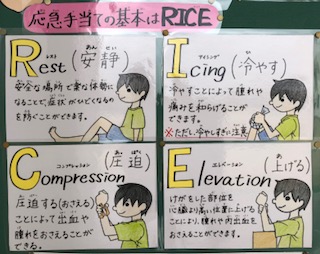 応急手当ての基本はRICE
レスト あんせい
Rest(安静)
安全な場所で楽な体勢に
なることで、症状がひどくなるの
を防ぐことができます。
アイシング ひ
Icing(冷やす)
冷やすことによって腫れや
痛みを和らげることができ
ます。
※ただし、冷やしすぎに注意
コンプレッション あっぱく
Compression(圧迫)
圧迫する(おさえる)
ことによって出血や
腫れをおさえることが
できる。
エレベーション あ
Elevation(上げる)
けがをした部位を
心臓より高い位置に上げる
ことにより、腫れや内出血を
おさえることができます。